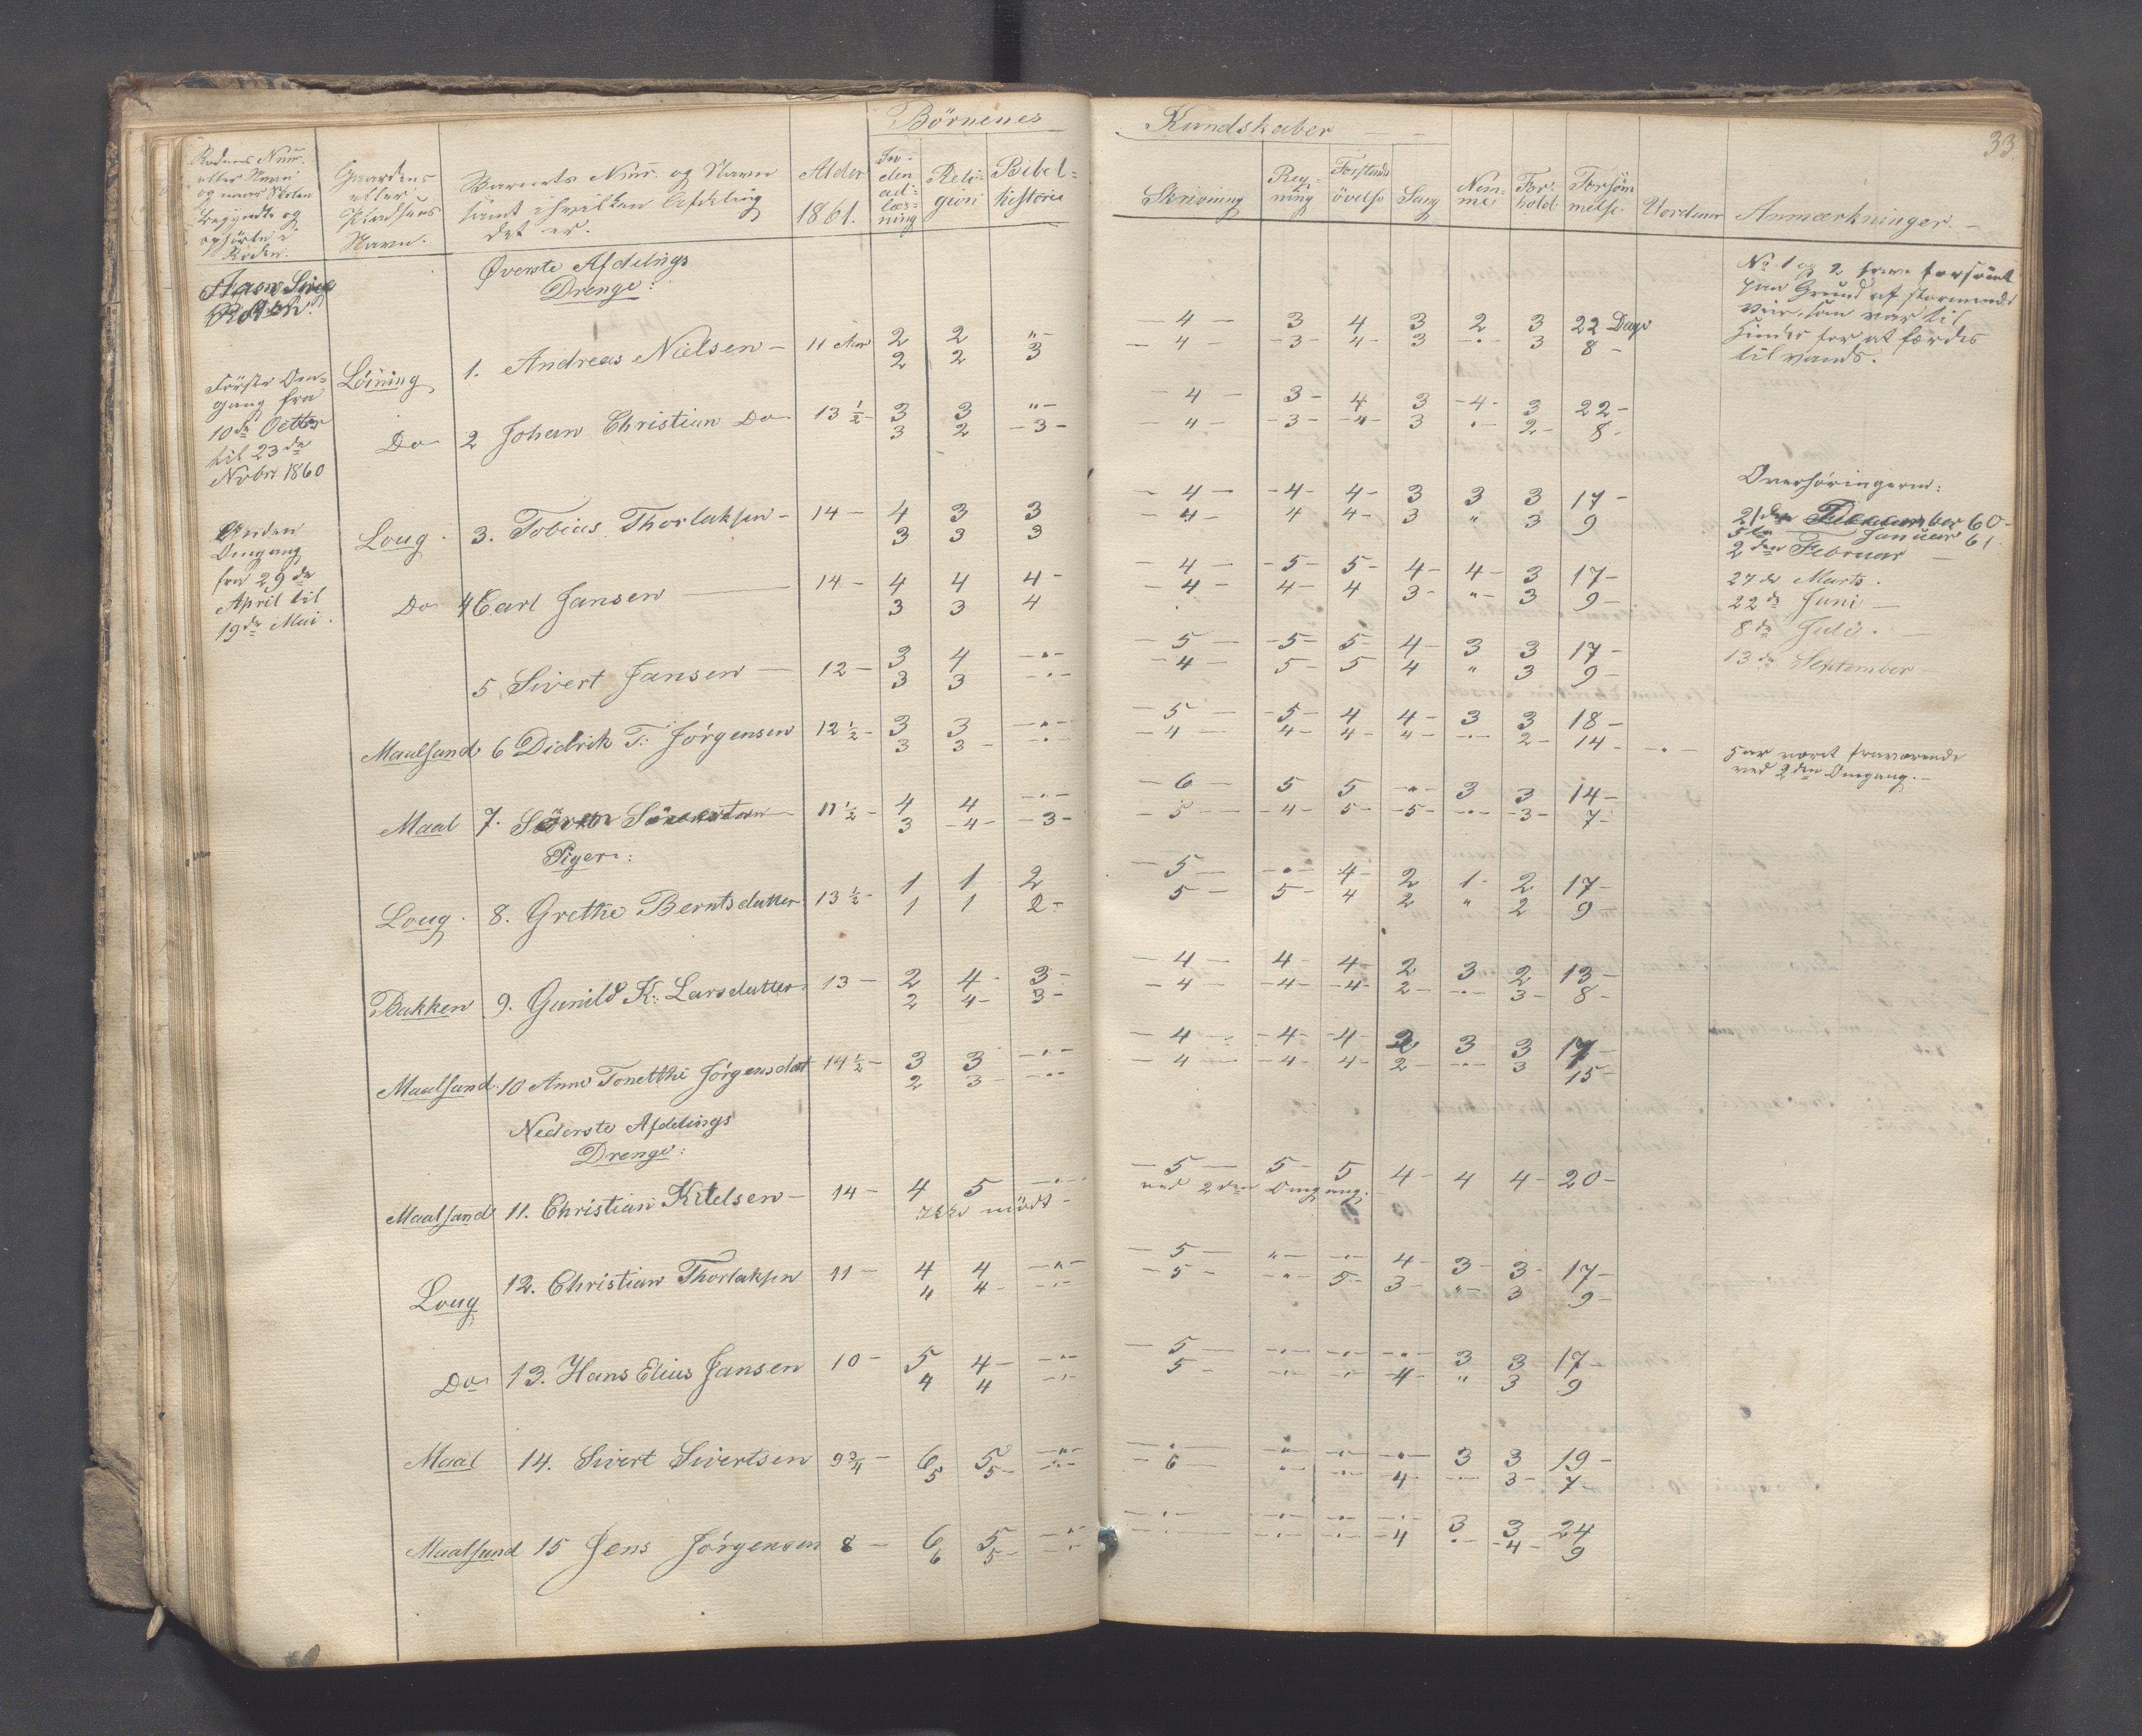 Börnenes Kundskaber
33.
Rodens Num.
eller Navn
og naar Skolen
begyndte og
ophörte i
Roden.
Gaardens
eller
Pladsens
Navn.
Barnets Num. og Navn
samt i hvilken Afdeling
det er.
Alder
1861.
In-
den
ad-
læs-
ning
Reli-
gion
Bibel-
historie
Skrivning
Reg-
ning
Forstands
övelse
Sang
Nem-
me
For-
hold
Forsöm
melse.
Uordener
Anmærkninger.
Roden.
Øverste Afdelings
Drenge:
No 1 og 2 have forsömt
paa Grund af stormende
Veir, som var til
Hinder for at færdes
til vands.
Förste Om-
gang fra
10de Octbr
til 23de
Novbr 1860
Löining 1. Andreas Nielsen 11 Aar 2 2 " 4 3 4 3 2 3 22 Dage
2 2 3 4 3 4 3 " 3 8
Do 2 Johan Christian Do 13 1/2 3 3 " 4 3 4 3 4 3 22
3 2 3 4 3 4 3 " 2 8
Anden
Omgang
fra 29de
April til
19de Mai.
Loug. 3. Tobias Thorlaksen 14 4 3 3 4 4 4 3 3 3 17
3 3 3 4 4 4 3 " 3 9
Overhöringerne:
21de December 60
5te Januar 61
2den Februar
27de Marts.
22de Juni
8de Juli.
13de September
Do 4 Carl Jansen 14 4 4 4 4 5 5 4 4 3 17
3 3 4 4 4 4 3 " 3 9
5 Sivert Jansen 12 3 4 " 5 5 5 4 3 3 17
3 3 " 4 5 5 4 " 3 9
Maalsund 6 Didrik T: Jörgensen 12 1/2 3 3 " 5 5 4 4 3 3 18
3 3 " 4 4 4 4 " 2 14 "
Har været fraværende
ved 2den Omgang.
Maal 7. Sören 11 1/2 4 4 " 6 5 5 " 3 3 14
3 4 3 5 4 5 5 " 3 7
Piger:
Loug. 8. Grethe Berntsdatter 13 1/2 1 1 2 5 " 4 2 1 2 17
1 1 2 5 5 4 2 " 2 9
Bakken 9. Gunild K: Larsdatter 13 2 4 3 4 4 4 2 3 2 13
2 4 3 4 4 4 2 " 3 8
Maalsund 10 Anne Tonetthe Jörgensdat 14 1/2 3 3 " 4 4 4 2 3 3 17
2 3 " 4 4 4 2 " 3 15
Nederste Afdelings
Drenge:
Maalsund 11. Christian Kitelsen 14 4 5 " 5 5 5 4 4 4 20
ikke mödt ved 2den Omgang.
Loug 12. Christian Thorlaksen 11 4 4 " 5 " " 4 3 3 17
4 4 " 5 " 5 3 " 3 9
Do 13. Hans Elius Jansen 10 5 4 " 5 " " " 3 3 17
4 4 " 5 " " 4 " 3 9
Maal 14. Sivert Sivertsen 9 3/4 6 5 " " " " " 3 3 19
5 5 " 6 " " 4 " 3 7
Maalsund 15 Jens Jörgensen 8 6 5 " " " " " 3 3 24
6 5 " " " " 4 " 4 9